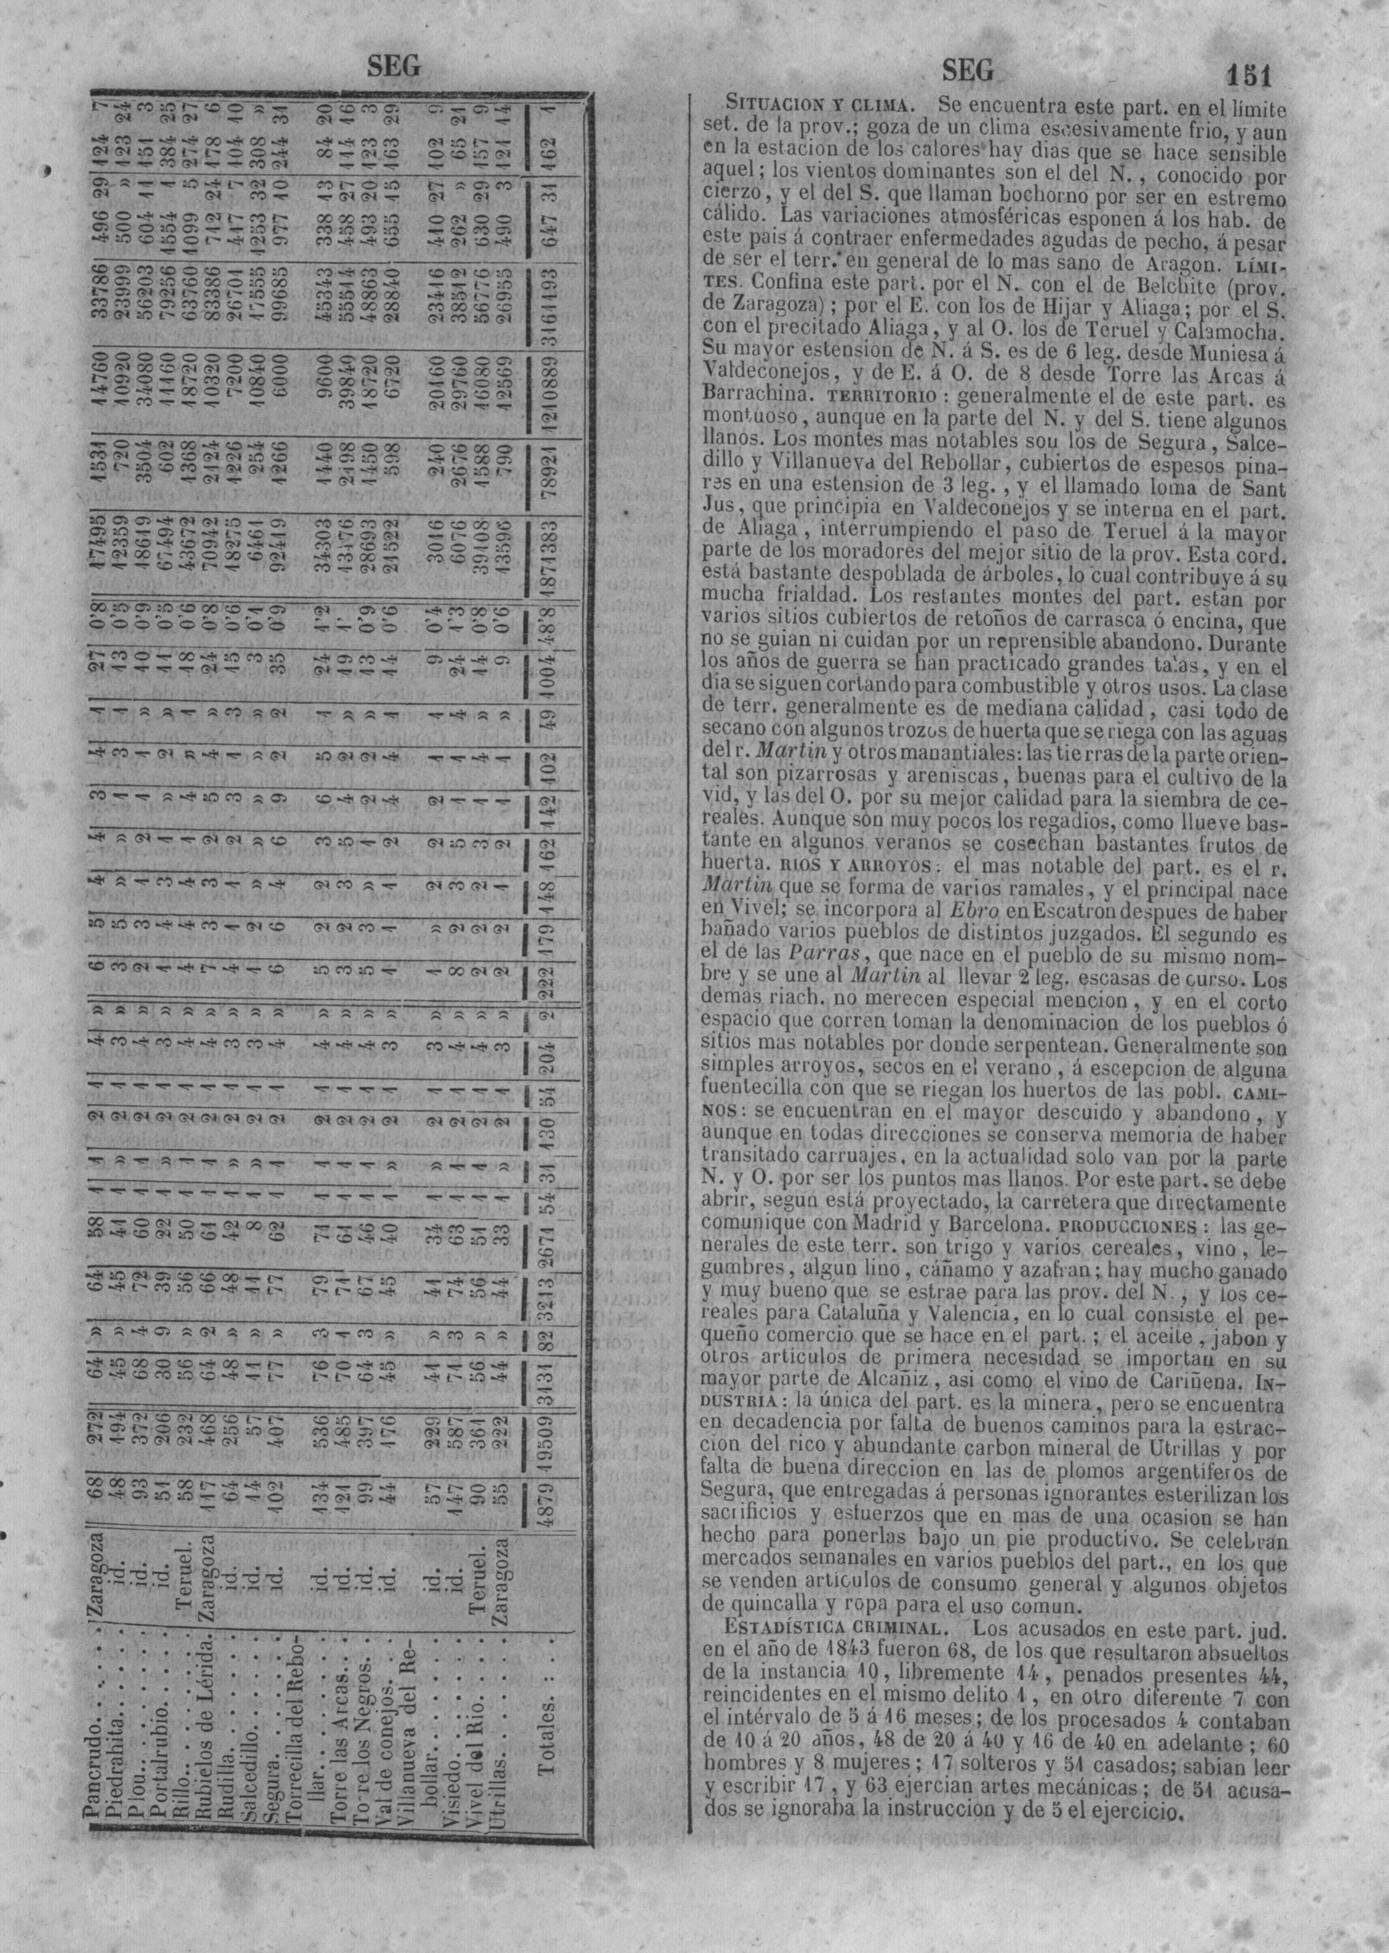 SEG
Pancrudo. . . . . . Zaragoza 68 272 64 » 64 58 1 1 2 1 4 » 6 5 4 4 3 4 1 27 0'8 17495 1531 14760 33786 496 29 124 7
Piedrahita. . . . . id. 48 194 45 » 45 41 1 » 2 1 3 » 3 5 » » 1 3 1 13 0'5 12359 720 10920 23999 500 » 123 24
Plou. . . . . . . id. 93 372 68 4 72 60 1 1 2 1 4 » 2 3 1 2 1 1 » 10 0'9 18619 3504 34080 56203 604 11 151 3
Portalrubio. . . . id. 51 206 30 9 39 22 1 » 2 1 3 » 1 4 3 1 » 2 » 11 0'5 67494 602 11160 79256 1554 1 384 25
Rillo. . . . . . . Teruel. 58 232 56 » 56 50 1 1 2 1 4 » 4 4 4 1 4 » 1 18 0'6 43672 1368 18720 63760 1099 5 274 27
Rubielos de Lérida. Zaragoza 117 468 64 2 66 61 1 1 2 1 4 » 7 3 3 2 5 4 » 24 0'8 70942 2124 10320 83386 712 24 178 6
Rudilla. . . . . . id. 64 256 48 » 48 42 1 » 2 1 3 » 4 1 1 2 3 1 3 15 0'6 18275 1226 7200 26701 417 7 104 10
Salcedillo. . . . . id. 14 57 11 » 11 8 1 » 2 1 3 » 1 2 » » » » » 3 0'1 6461 254 10840 17555 1253 32 308 »
Segura. . . . . . id. 102 407 77 » 77 62 1 1 2 1 4 » 6 6 4 6 9 2 2 35 0'9 92419 1266 6000 99685 977 10 244 31
Torrecilla del Rebo-
llar. . . . . . . id. 134 536 76 3 79 71 1 1 2 1 4 » 5 2 2 3 6 5 1 24 1'2 34303 1440 9600 45343 338 13 84 20
Torre las Arcas. . . id. 121 485 70 1 71 61 1 1 2 1 4 » 3 2 3 5 4 2 » 19 1' 13176 2198 39840 55514 458 27 114 16
Torre los Negros. . id. 99 397 64 3 67 46 1 1 2 1 4 » 5 3 » 1 2 2 » 13 0'9 28693 1450 18720 48863 493 20 123 3
Val de conejos. . . id. 44 176 45 » 45 40 1 » 2 1 3 » 1 1 1 2 4 4 1 14 0'6 21522 598 6720 28840 655 15 163 29
Villanueva del Re-
bollar. . . . . . id. 57 229 41 » 41 34 1 » 2 1 3 » 1 » 2 2 2 1 1 9 0'4 3016 240 20160 23416 410 27 102 9
Visiedo. . . . . . id. 147 587 71 3 74 63 1 1 2 1 4 » 8 2 3 5 1 1 4 24 1'3 6076 2676 29760 38512 262 » 65 21
Vivel del Rio. . . . Teruel. 90 361 56 » 56 51 1 1 2 1 4 » 2 2 2 3 1 4 » 14 0'8 39108 1588 16080 56776 630 29 157 9
Utrillas. . . . . . Zaragoza 55 222 44 » 44 33 1 » 2 1 3 » 2 2 1 2 1 1 » 9 0'6 13596 790 12569 26955 490 3 121 14
Totales. : . . 4879 19509 3131 82 3213 2671 54 31 130 54 204 2 222 179 148 162 142 102 49 1004 48'8 1871383 78921 1210889 3161193 647 31 162 1
SEG 151
SITUACION Y CLIMA. Se encuentra este part. en el límite
set. de la prov.; goza de un clima escesivamente frio, y aun
en la estacion de los calores hay dias que se hace sensible
aquel; los vientos dominantes son el del N., conocido por
cierzo, y el del S. que llaman bochorno por ser en estremo
cálido. Las variaciones atmosféricas esponen á los hab. de
este pais á contraer enfermedades agudas de pecho, á pesar
de ser el terr. en general de lo mas sano de Aragon. LÍMI-
TES. Confina este part. por el N. con el de Belchite (prov.
de Zaragoza); por el E. con los de Hijar y Aliaga; por el S.
con el precitado Aliaga, y al O. los de Teruel y Calamocha.
Su mayor estension de N. á S. es de 6 leg. desde Muniesa á
Valdeconejos, y de E. á O. de 8 desde Torre las Arcas á
Barrachina. TERRITORIO: generalmente el de este part. es
montuoso, aunque en la parte del N. y del S. tiene algunos
llanos. Los montes mas notables sou los de Segura, Salce-
dillo y Villanueva del Rebollar, cubiertos de espesos pina-
res en una estension de 3 leg., y el llamado loma de Sant
Jus, que principia en Valdeconejos y se interna en el part.
de Aliaga, interrumpiendo el paso de Teruel á la mayor
parte de los moradores del mejor sitio de la prov. Esta cord.
está bastante despoblada de árboles, lo cual contribuye á su
mucha frialdad. Los restantes montes del part. estan por
varios sitios cubiertos de retoños de carrasca ó encina, que
no se guian ni cuidan por un reprensible abandono. Durante
los años de guerra se han practicado grandes talas, y en el
dia se siguen cortando para combustible y otros usos. La clase
de terr. generalmente es de mediana calidad, casi todo de
secano con algunos trozos de huerta que se riega con las aguas
del r. Martin y otros manantiales: las tierras de la parte orien-
tal son pizarrosas y areniscas, buenas para el cultivo de la
vid, y las del O. por su mejor calidad para la siembra de ce-
reales. Aunque son muy pocos los regadios, como llueve bas-
tante en algunos veranos se cosechan bastantes frutos de
huerta. RIOS Y ARROYOS: el mas notable del part. es el r.
Martin que se forma de varios ramales, y el principal nace
en Vivel; se incorpora al Ebro en Escatron despues de haber
bañado varios pueblos de distintos juzgados. El segundo es
el de las Parras, que nace en el pueblo de su mismo nom-
bre y se une al Martin al llevar 2 leg. escasas de curso. Los
demas riach. no merecen especial mencion, y en el corto
espacio que corren toman la denominacion de los pueblos ó
sitios mas notables por donde serpentean. Generalmente son
simples arroyos, secos en el verano, á escepcion de alguna
fuentecilla con que se riegan los huertos de las pobl. CAMI-
NOS: se encuentran en el mayor descuido y abandono, y
aunque en todas direcciones se conserva memoria de haber
transitado carruajes, en la actualidad solo van por la parte
N. y O. por ser los puntos mas llanos. Por este part. se debe
abrir, segun está proyectado, la carretera que directamente
comunique con Madrid y Barcelona. PRODUCCIONES: las ge-
nerales de este terr. son trigo y varios cereales, vino, le-
gumbres, algun lino, cáñamo y azafran; hay mucho ganado
y muy bueno que se estrae para las prov. del N., y los ce-
reales para Cataluña y Valencia, en lo cual consiste el pe-
queño comercio que se hace en el part.; el aceite, jabon y
otros artículos de primera necesidad se importan en su
mayor parte de Alcañiz, asi como el vino de Cariñena. IN-
DUSTRIA: la única del part. es la minera, pero se encuentra
en decadencia por falta de buenos caminos para la estrac-
cion del rico y abundante carbon mineral de Utrillas y por
falta de buena direccion en las de plomos argentiferos de
Segura, que entregadas á personas ignorantes esterilizan los
sacrificios y esfuerzos que en mas de una ocasion se han
hecho para ponerlas bajo un pie productivo. Se celebran
mercados semanales en varios pueblos del part., en los que
se venden artículos de consumo general y algunos objetos
de quincalla y ropa para el uso comun.
ESTADÍSTICA CRIMINAL. Los acusados en este part. jud.
en el año de 1843 fueron 68, de los que resultaron absueltos
de la instancia 10, libremente 14, penados presentes 44,
reincidentes en el mismo delito 1, en otro diferente 7 con
el intérvalo de 5 á 16 meses; de los procesados 4 contaban
de 10 á 20 años, 48 de 20 á 40 y 16 de 40 en adelante; 60
hombres y 8 mujeres; 17 solteros y 51 casados; sabian leer
y escribir 17, y 63 ejercian artes mecánicas; de 51 acusa-
dos se ignoraba la instruccion y de 5 el ejercicio.